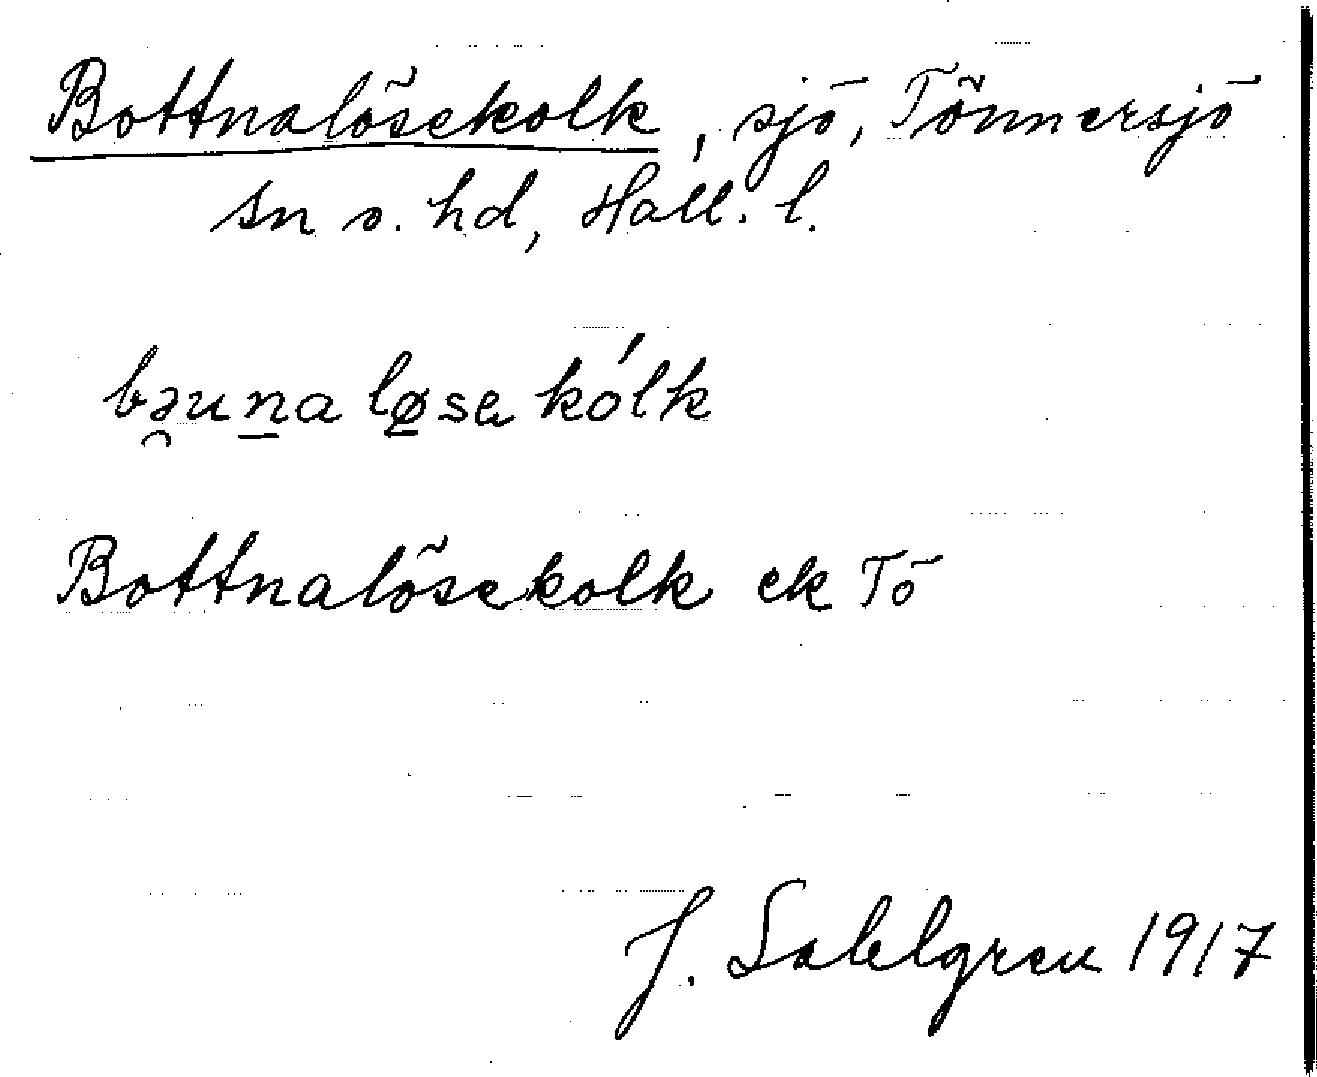 Bottnalösekolk, sjö, Tönnersjö
sn o. hd, Hall. l.
bə̯un̲alø̲sa kólk
Bottnalösekolk ek Tö
J. Sahlgren 1917